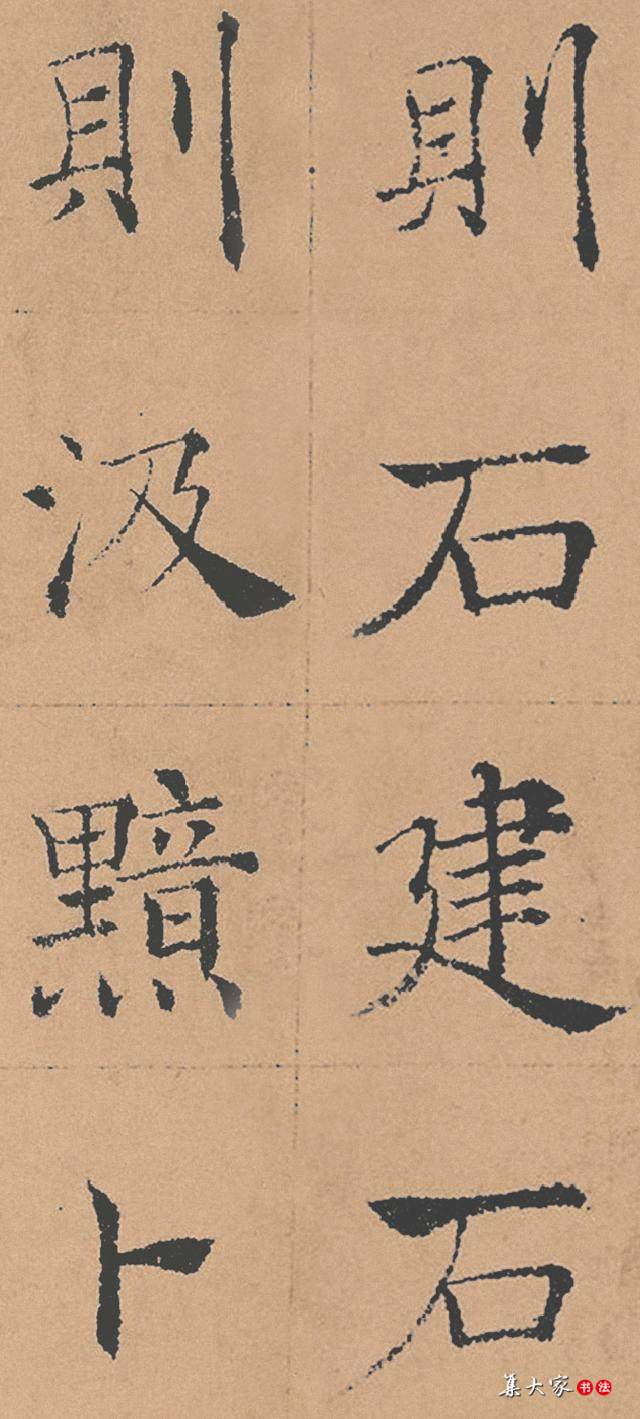 則石建石
則汲黯卜
集大家书法